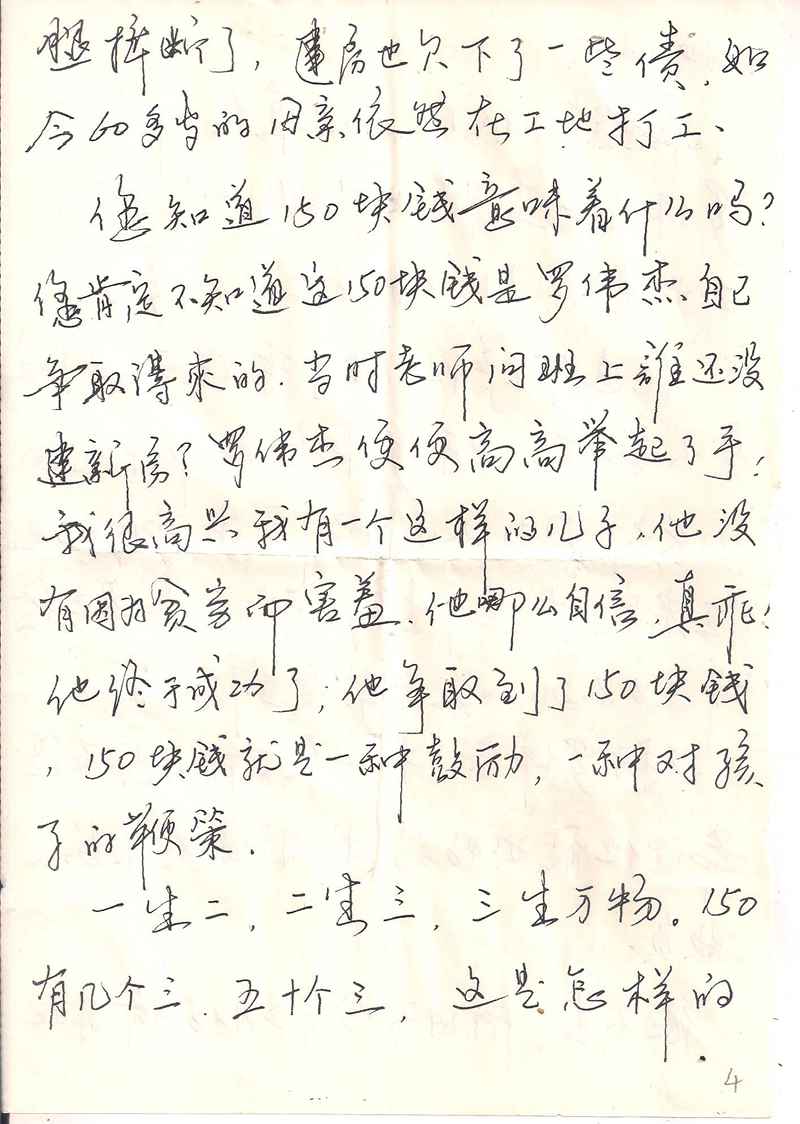 腿摔断了，建房也欠下了一些债，如
今60多岁的母亲依然在工地打工、
您知道150块钱意味着什么吗？
您肯定不知道这150块钱是罗伟杰自己
争取得來的．当时老师问班上誰还没
建新房？罗伟杰便便高高举起了手！
我很高兴我有一个这样的儿子，他没
有因为贫穷而害羞．他哪么自信，真乖！
他终于成功了；他争取到了150块钱
，150块钱就是一种鼓励，一种对孩
子的鞭策．
一生二，二生三，三生万物。150
有几个三．五十个三，这是怎样的
4